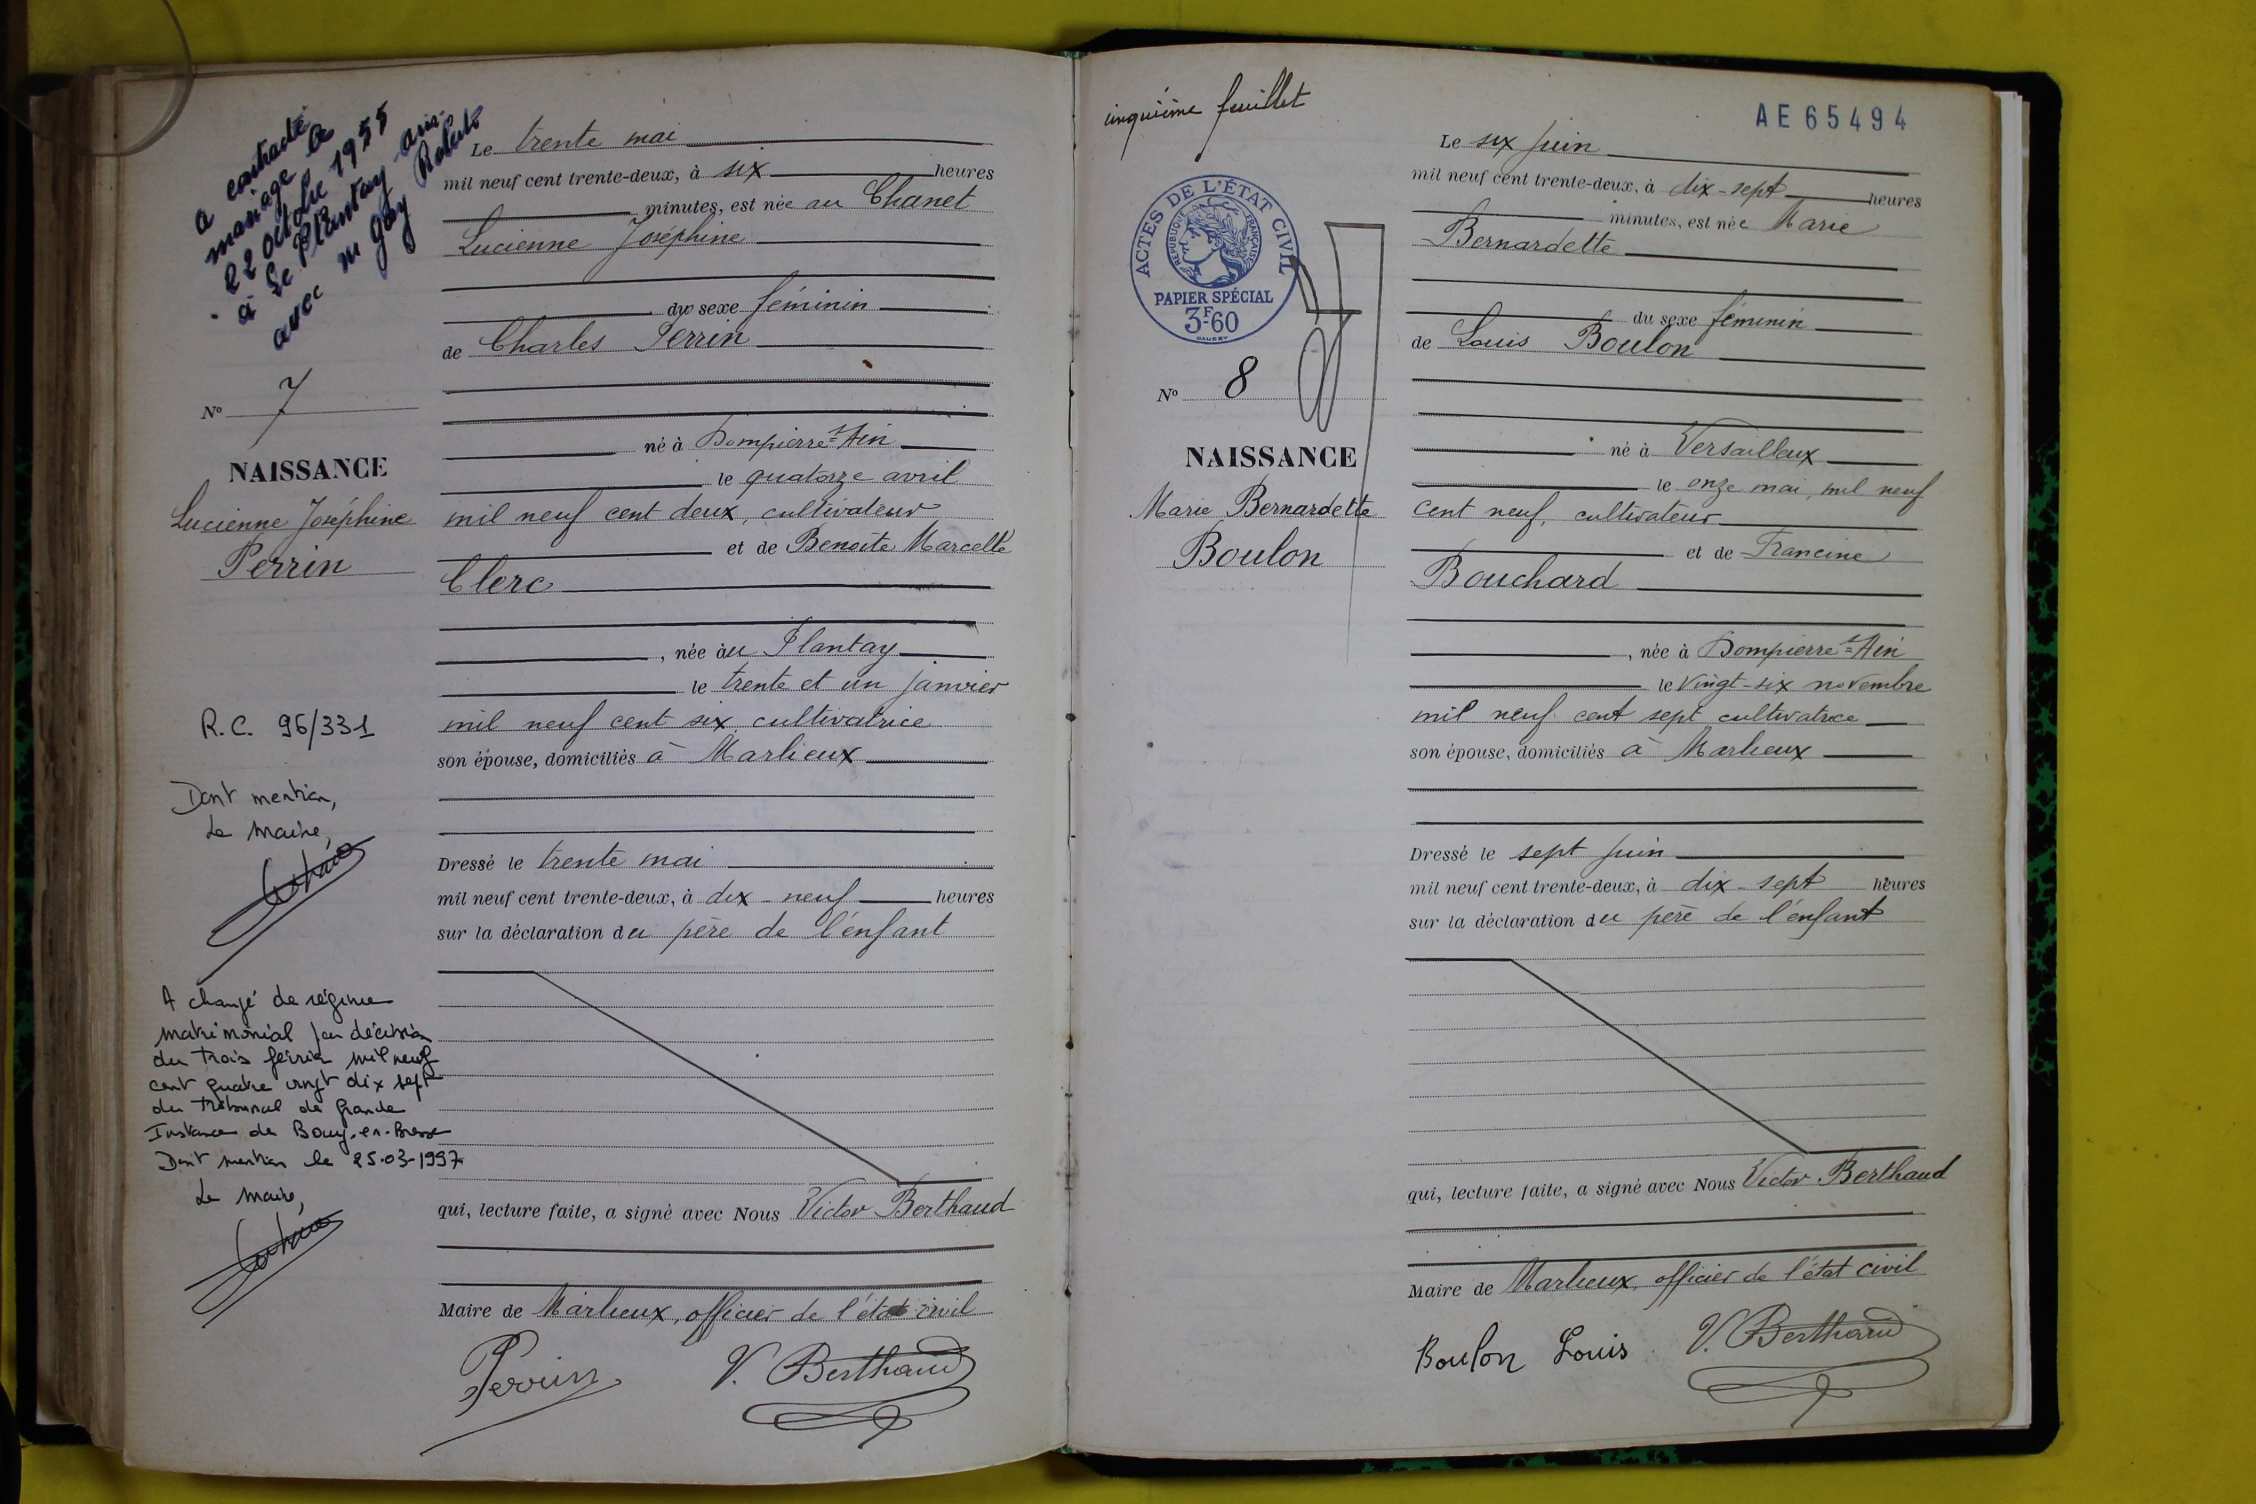 a contracté
mariage le
22 octobre 1955
à Le Plantay Ain
avec M Gay Robert
Le trente mai
mil neuf cent trente-deux, à six heures
minutes, est née au Chanet
Lucienne Joséphine
du sexe féminin
de Charles Perrin
Nº 7
né à Dompierre s/Ain
NAISSANCE
le quatorze avril
Lucienne Joséphine
mil neuf cent deux, cultivateur
et de Benoîte Marcelle
Perrin
Clerc
, née au Plantay
le trente et un janvier
R.C. 96/331
mil neuf cent six cultivatrice
son épouse, domiciliés à Marlieux
Dont mention,
Le Maire,
Dressé le trente mai
mil neuf cent trente-deux, à dix-neuf heures
sur la déclaration du père de l'enfant
A changé de régime
matrimonial par décision
du trois février mil neuf
cent quatre vingt dix sept
du Tribunal de Grande
Instance de Bourg-en-Bresse
Dont mention le 25-03-1997
Le Maire,
qui, lecture faite, a signé avec Nous Victor Berthaud
Maire de Marlieux, officier de l'état civil
Perrin V. Berthaud
cinquième feuillet
AE65494
Le six juin
mil neuf cent trente-deux, à dix-sept heures
minutes, est née Marie
Bernardette
ACTES DE L'ÉTAT CIVIL
RÉPUBLIQUE FRANÇAISE
PAPIER SPÉCIAL
3F60
du sexe féminin
de Louis Boulon
Nº 8
né à Versailleux
NAISSANCE
le onze mai mil neuf
Marie Bernardette
cent neuf, cultivateur
et de Francine
Boulon
Bouchard
, née à Dompierre s/Ain
le vingt-six novembre
mil neuf cent sept cultivatrice
son épouse, domiciliés à Marlieux
Dressé le sept juin
mil neuf cent trente-deux, à dix-sept heures
sur la déclaration du père de l'enfant
qui, lecture faite, a signé avec Nous Victor Berthaud
Maire de Marlieux, officier de l'état civil
Boulon Louis V. Berthaud